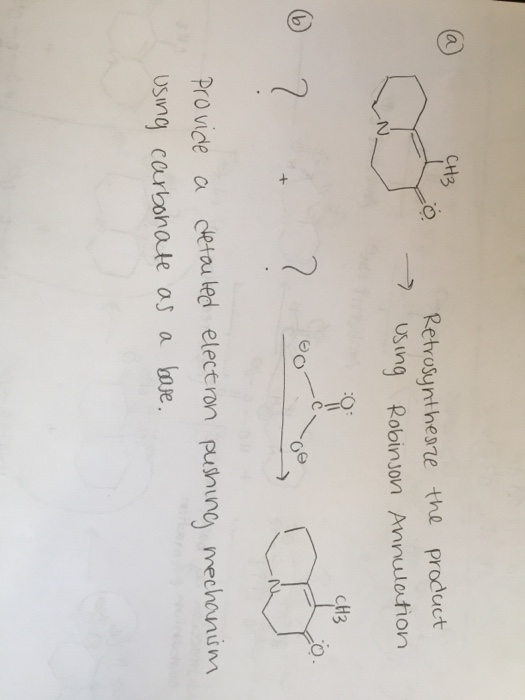 (a)
CH3
N
:O:
→ Retrosynthesize the product
using Robinson Annulation
(b)
? + ?
:O:
⊖O C O⊖
CH3
N
O:
Provide a detailed electron pushing mechanism
using carbonate as a base.